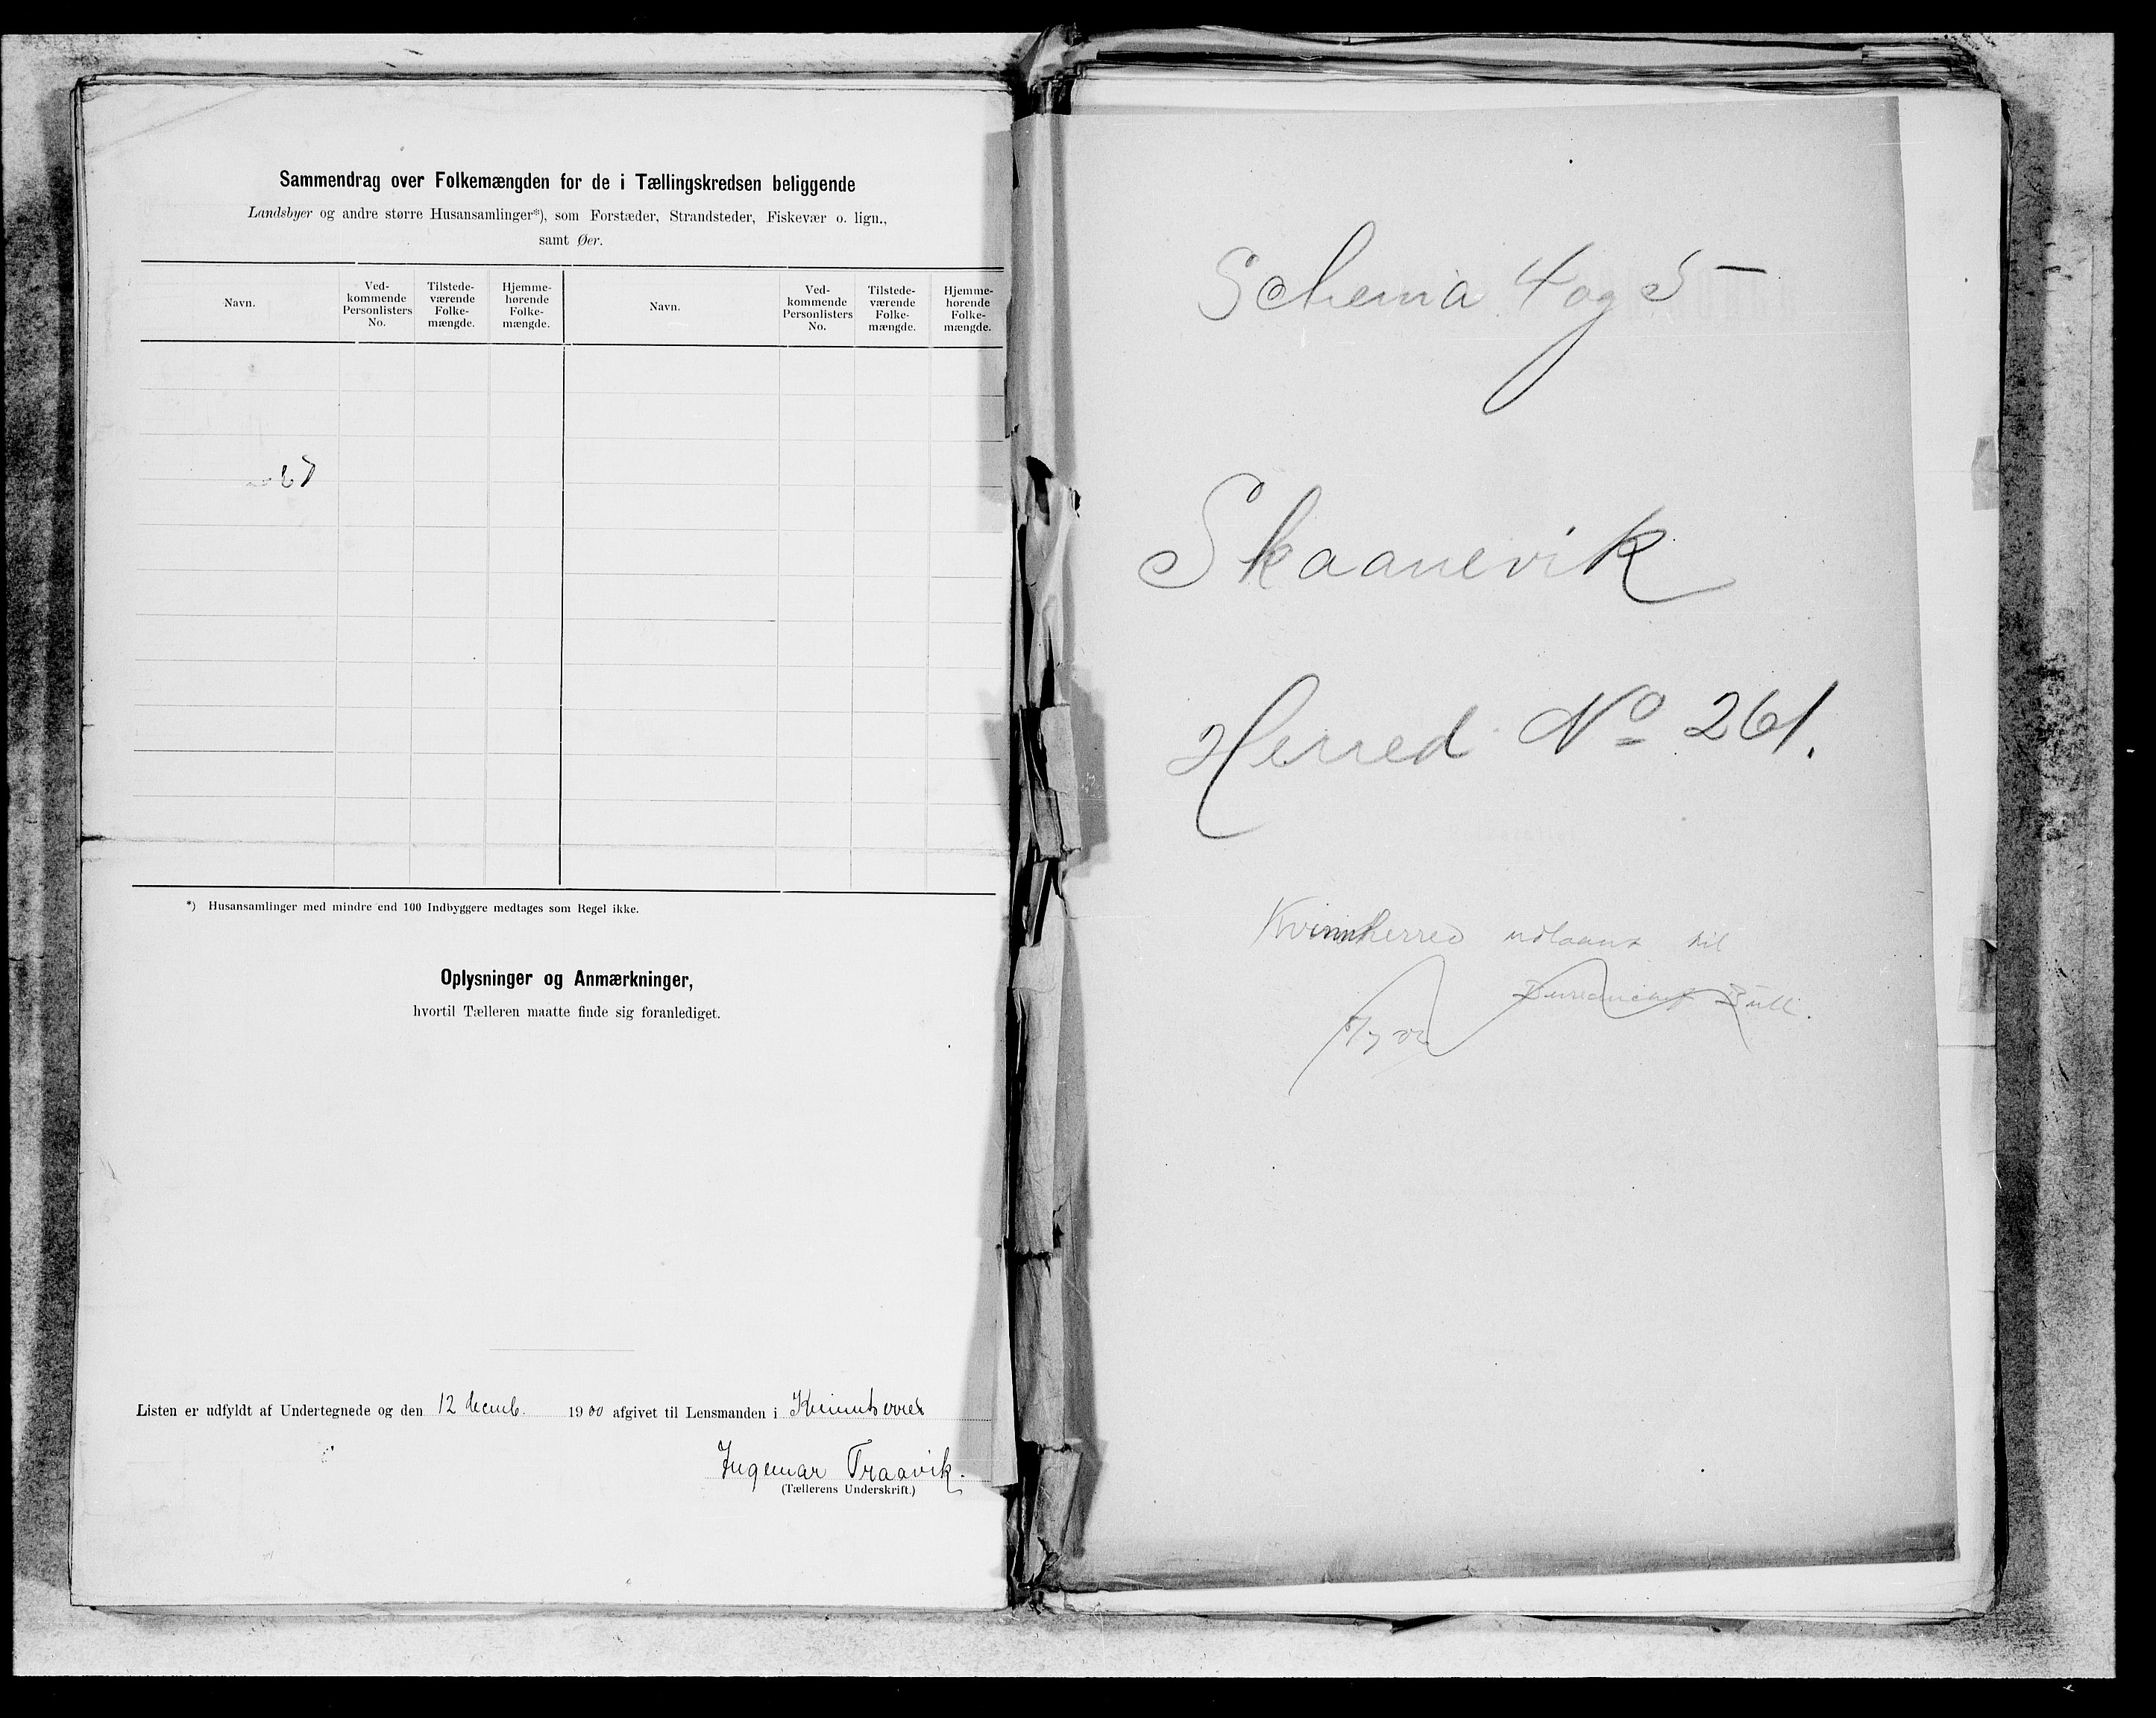 Sammendrag over Folkemængden for de i Tællingskredsen beliggende
Landsbyer og andre større Husansamlinger*), som Forstæder, Strandsteder, Fiskevær o. lign.,
samt Øer.
Navn.
Ved-
kommende
Personlisters
No.
Tilstede-
værende
Folke-
mængde.
Hjemme-
hørende
Folke-
mængde.
Navn.
Ved-
kommende
Personlisters
No.
Tilstede-
værende
Folke-
mængde.
Hjemme-
hørende
Folke-
mængde.
*) Husansamlinger med mindre end 100 Indbyggere medtages som Regel ikke.
Oplysninger og Anmærkninger,
hvortil Tælleren maatte finde sig foranlediget.
Listen er udfyldt af Undertegnede og den 12 decmb. 1900 afgivet til Lensmanden i Kvinnherred
Ingemar Traavik.
(Tællerens Underskrift.)
Schema 4 og 5
Skaanevik
Herred No 261.
Kvinnherred udlaant til
Bull.